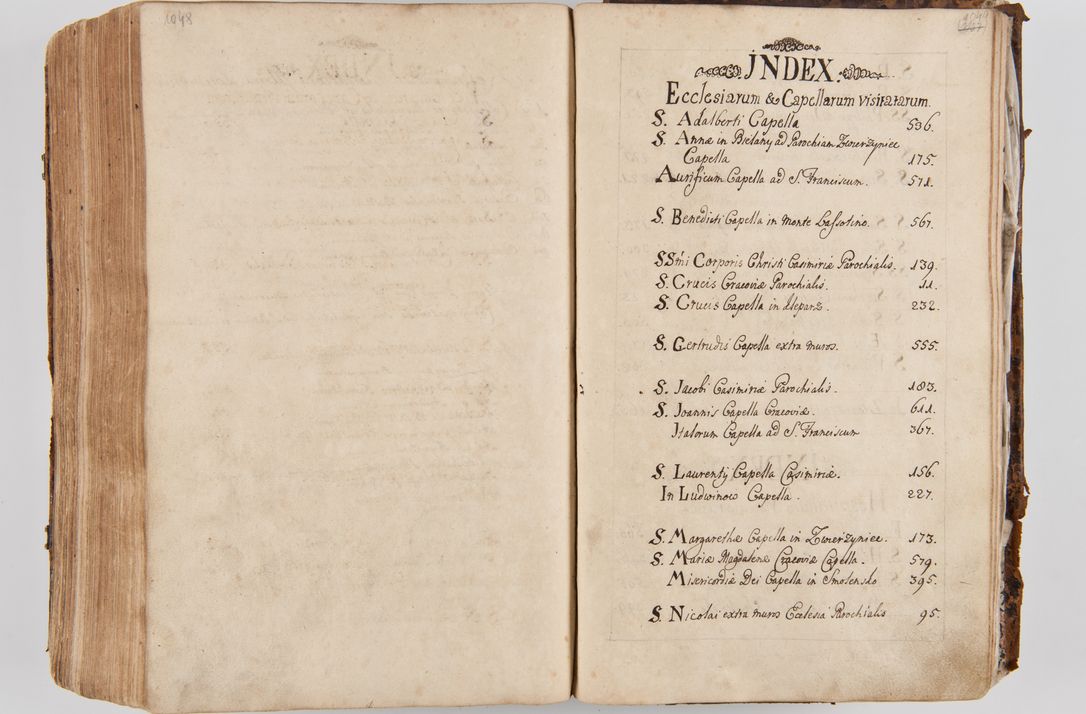 1048
1049
JNDEX.
Ecclesiarum & Capellarum visitatarum.
S. Adalberti Capella 536.
S. Annæ in Bielany ad Parochiam Zwierzyniec
Capella 175.
Aurificum Capella ad S. Franciscum. 571.
S. Benedicti Capella in monte Lassotino. 567.
SSmi Corporis Christi Casimiriæ Parochialis. 139.
S. Crucis Cracoviæ Parochialis. 11.
S. Crucis Capella in Kleparz. 232.
S. Gertrudis Capella extra muros. 555.
S. Jacobi Casimiriæ Parochialis. 183.
S. Joannis Capella Cracoviæ. 611.
Jtalorum Capella ad S. Franciscum 367.
S. Laurentij Capella Casimiriæ. 156.
In Ludwinow Capella. 227.
S. Margarethæ Capella in Zwierzyniec. 173.
S. Mariæ Magdalenæ Cracoviæ Capella. 579.
Misericordiæ Dei Capella in Smolensko 395.
S. Nicolai extra muros Ecclesia Parochialis 95.